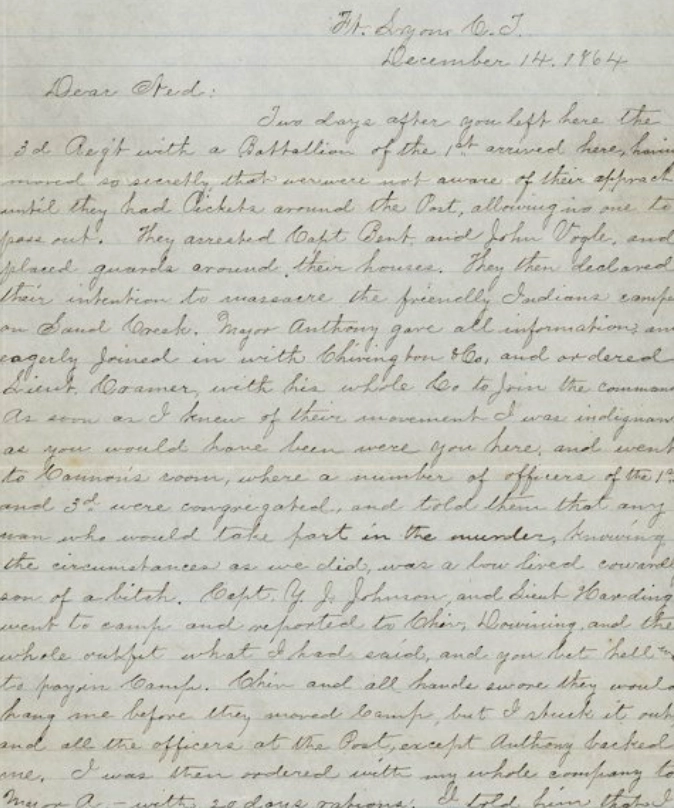 Ft. Lyon C. T.
December 14, 1864
Dear Ned:
Two days after you left here the
3d Reg't with a Battallion of the 1st arrived here, havin
moved so secretly that we were not aware of their approach
until they had Pickets around the Post, allowing no one to
pass out. They arrested Capt Bent and John Vogle, and
placed guards around their houses. They then declared
their intention to massacre the friendly Indians camp
on Sand Creek. Major Anthony gave all information, an
eagerly Joined in with Chivington & Co, and ordered
Lieut. Cramer, with his whole Co to Join the comman
As soon as I knew of their movement I was indignan
as you would have been were you here, and went
to Cannon's room, where a number of officers of the 1st
and 3d were congregated, and told them that any
man who would take part in the murder, knowing
the circumstances as we did, was a low lived coward
son of a bitch. Capt. Y. J. Johnson, and Lieut Harding
went to camp and reported to Chiv, Downing, and the
whole outfit what I had said, and you bet hell was
to pay in Camp. Chiv and all hands swore they would
hang me before they moved Camp, but I stuck it out
and all the officers at the Post, except Anthony backed
me. I was then ordered with my whole company to
Major A- with 20 days rations. I told him that I